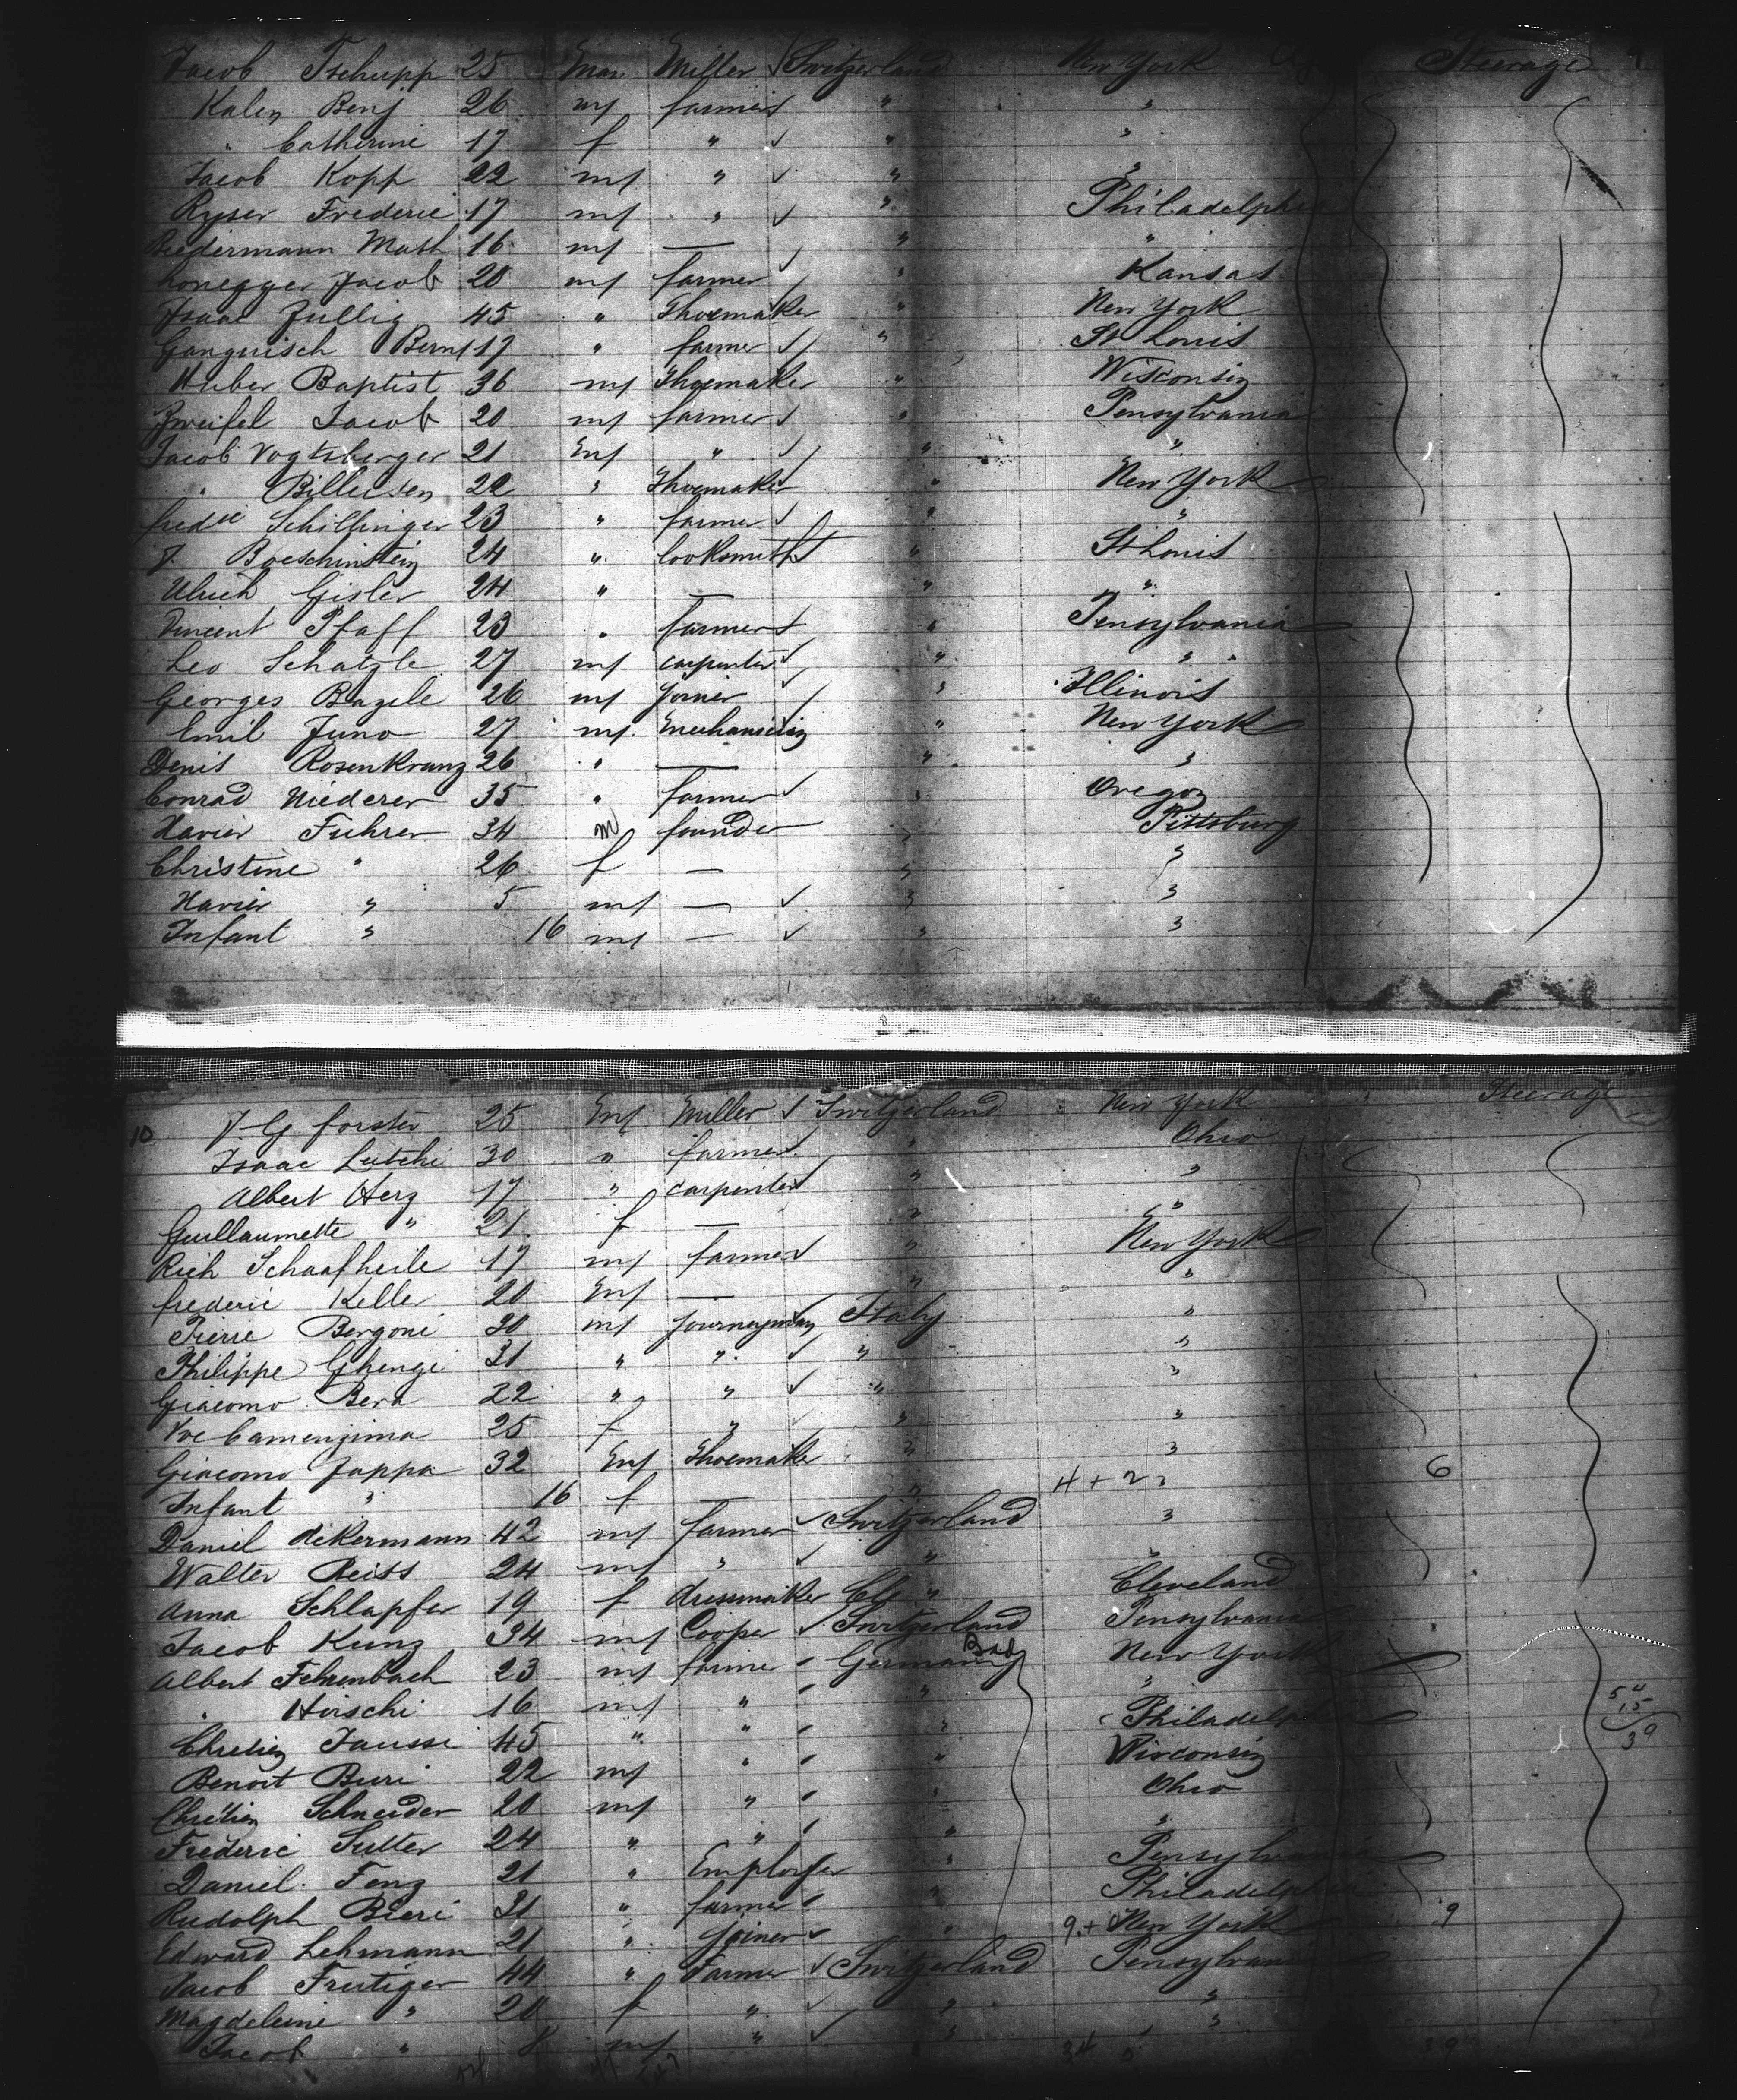 Jacob Tschupp 25 Mar. Miller ✓ Switzerland New York Steerage 9
Kalen Benj 26 m farmer " "
" Catherine 17 f " ✓ " "
Jacob Kopp 22 m " ✓ " "
Ryser Frederic 17 m " ✓ " Philadelphia
Biedermann Math 16 m — ✓ " "
Honegger Jacob 20 m farmer ✓ " Kansas
Isaac Zullig 45 " Shoemaker " New York
Ganguisch Bern 17 " farmer ✓ " St Louis
Huber Baptist 36 m Shoemaker " Wisconsin
Zweifel Jacob 20 m farmer ✓ " Pensylvania
Jacob Vogtsberger 21 m " ✓ " "
" 22 " Shoemaker " New York
fredric Schillinger 23 " farmer ✓ " "
J. Boeschinstein 24 " Locksmith " St Louis
Ulrich Gisler 24 " — " "
Vincent Pfaff 23 " farmer ✓ " Pensylvania
Leo Schatzle 27 m carpenter ✓ " "
Georges Bazile 26 m joiner ✓ " Illinois
Emil Juno 27 m mechanician " New York
Denis Rosenkranz 26 " — " "
Conrad Niederer 35 " farmer ✓ " Oregon
Xavier Fuhrer 34 m founder " Pittsburg
Christine " 26 f — " "
Xavier " 5 m — ✓ " "
Infant " 16 m — ✓ " "
10 J G forster 25 m Miller ✓ Switzerland New York Steerage
Isaac Lutchi 30 " farmer ✓ " Ohio
Albert Herz 17 " carpenter ✓ " "
Guillaumette " 21 f — " "
Rich Schaafheile 17 m farmer ✓ " New York
frederic Keller 20 m — " "
Pierre Bergoni 30 m journeyman ✓ Italy "
Philippe Ghengi 31 " " ✓ " "
Giacomo Bera 22 " " ✓ " "
Vve Camenzima 25 f " " "
Giacomo Zappa 32 m Shoemaker " "
Infant " 16 f — " 4 + 2 " 6
Daniel Ackermann 42 m farmer ✓ Switzerland "
Walter Reiss 24 m " ✓ " "
Anna Schlapfer 19 f dressmaker " Cleveland
Jacob Kunz 34 m Cooper ✓ Switzerland Pensylvania
Albert Fehrenbach 23 m farmer Germany New York
" Hirschi 16 m " " "
Chretien Jausse 45 " " " Philadelphia
Benoit Buri 22 m " " Wisconsin
Chretien Schneider 20 m " " Ohio
Frederic Sutter 24 " " " "
Daniel Fenz 21 " Employer " Pensylvania
Rudolph Bieri 21 " farmer " Philadelphia
Edward Lehmann 21 " joiner ✓ " 9 + New York 9
Jacob Frutiger 44 " Farmer ✓ Switzerland Pensylvania
Magdeleine " 20 f " ✓ " "
Jacob " 8 m " ✓ " "
54
15
39